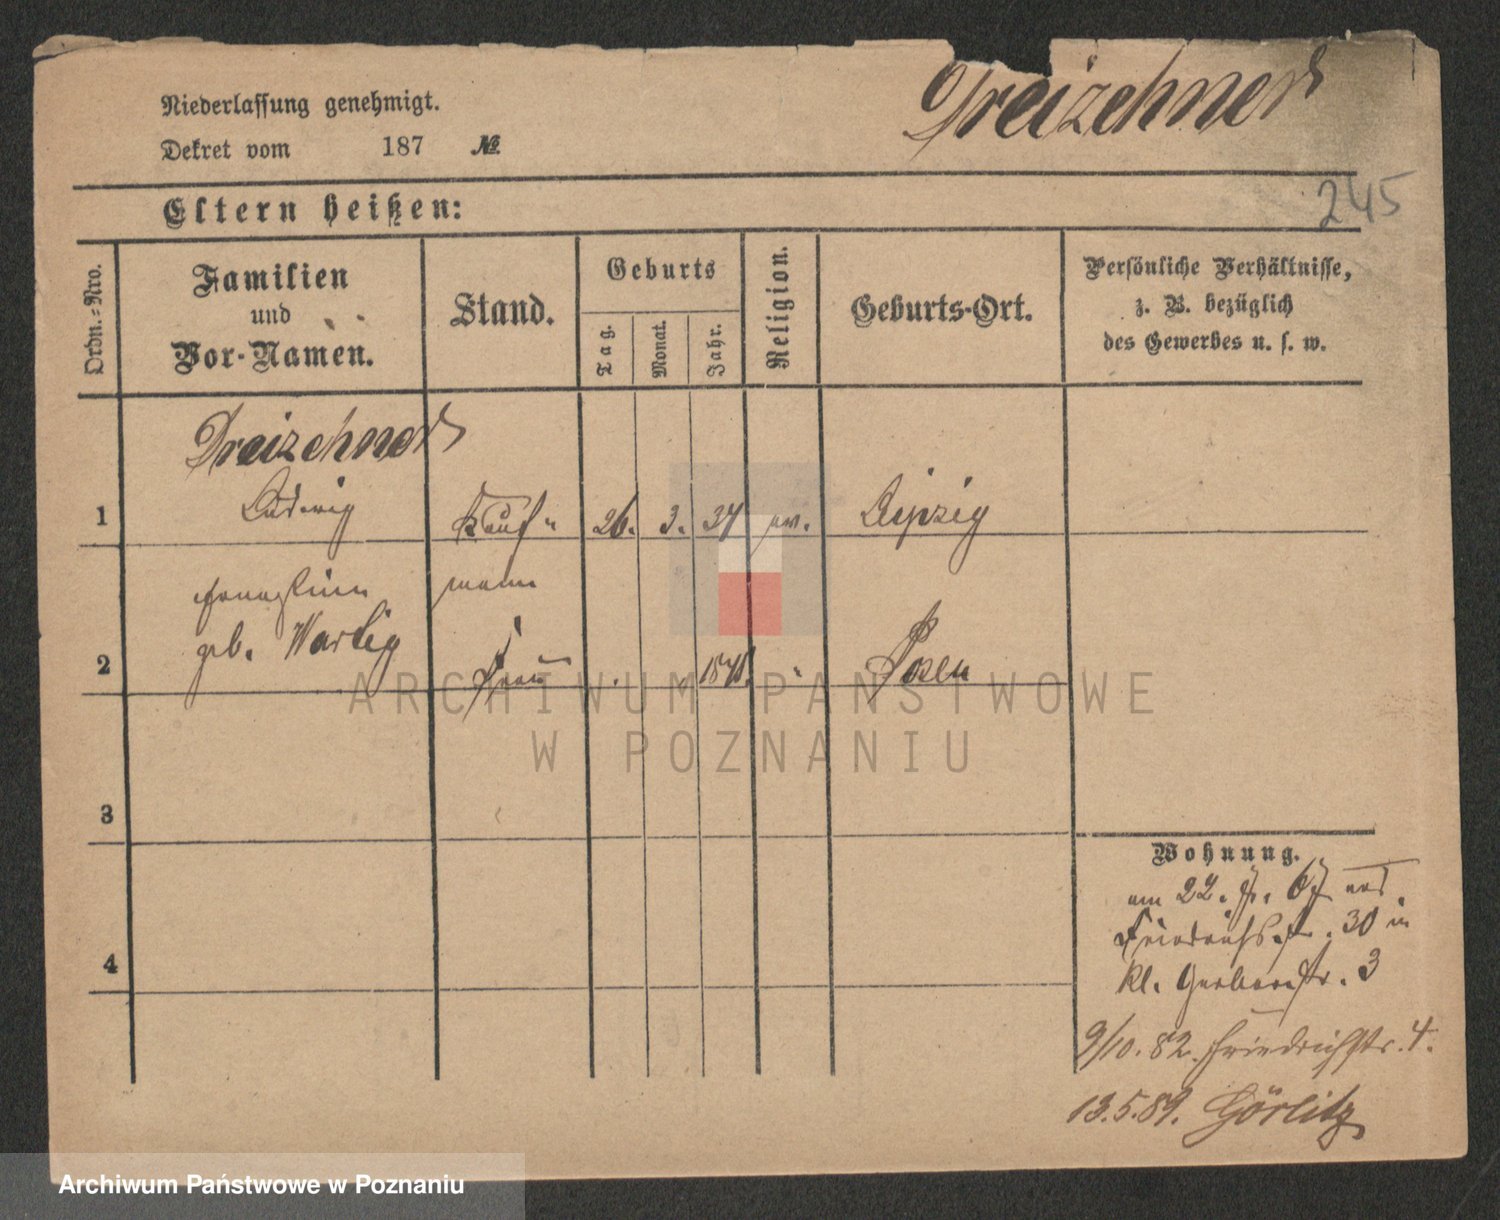 Dreizehner
Niederlassung genehmigt.
Dekret vom 187 №
245
Eltern heißen:
Ordn.-Nro.
Familien
und
Vor-Namen.
Stand.
Geburts
Tag.
Monat.
Jahr.
Religion.
Geburts-Ort.
Persönliche Verhältnisse,
z. B. bezüglich
des Gewerbes u. s. w.
Dreizehner
1 Ludwig Kauf- 26. 3. 34 ev. Leipzig
mann
geb. Wartig
2 Frau Posen
3
Wohnung.
am 22. 67 aus
Friedrichsstr. 30 in
kl. Gerberstr. 3
4
9/10. 82. Friedrichstr. 4.
13.5.89. Görlitz
ARCHIWUM PAŃSTWOWE
W POZNANIU
Archiwum Państwowe w Poznaniu